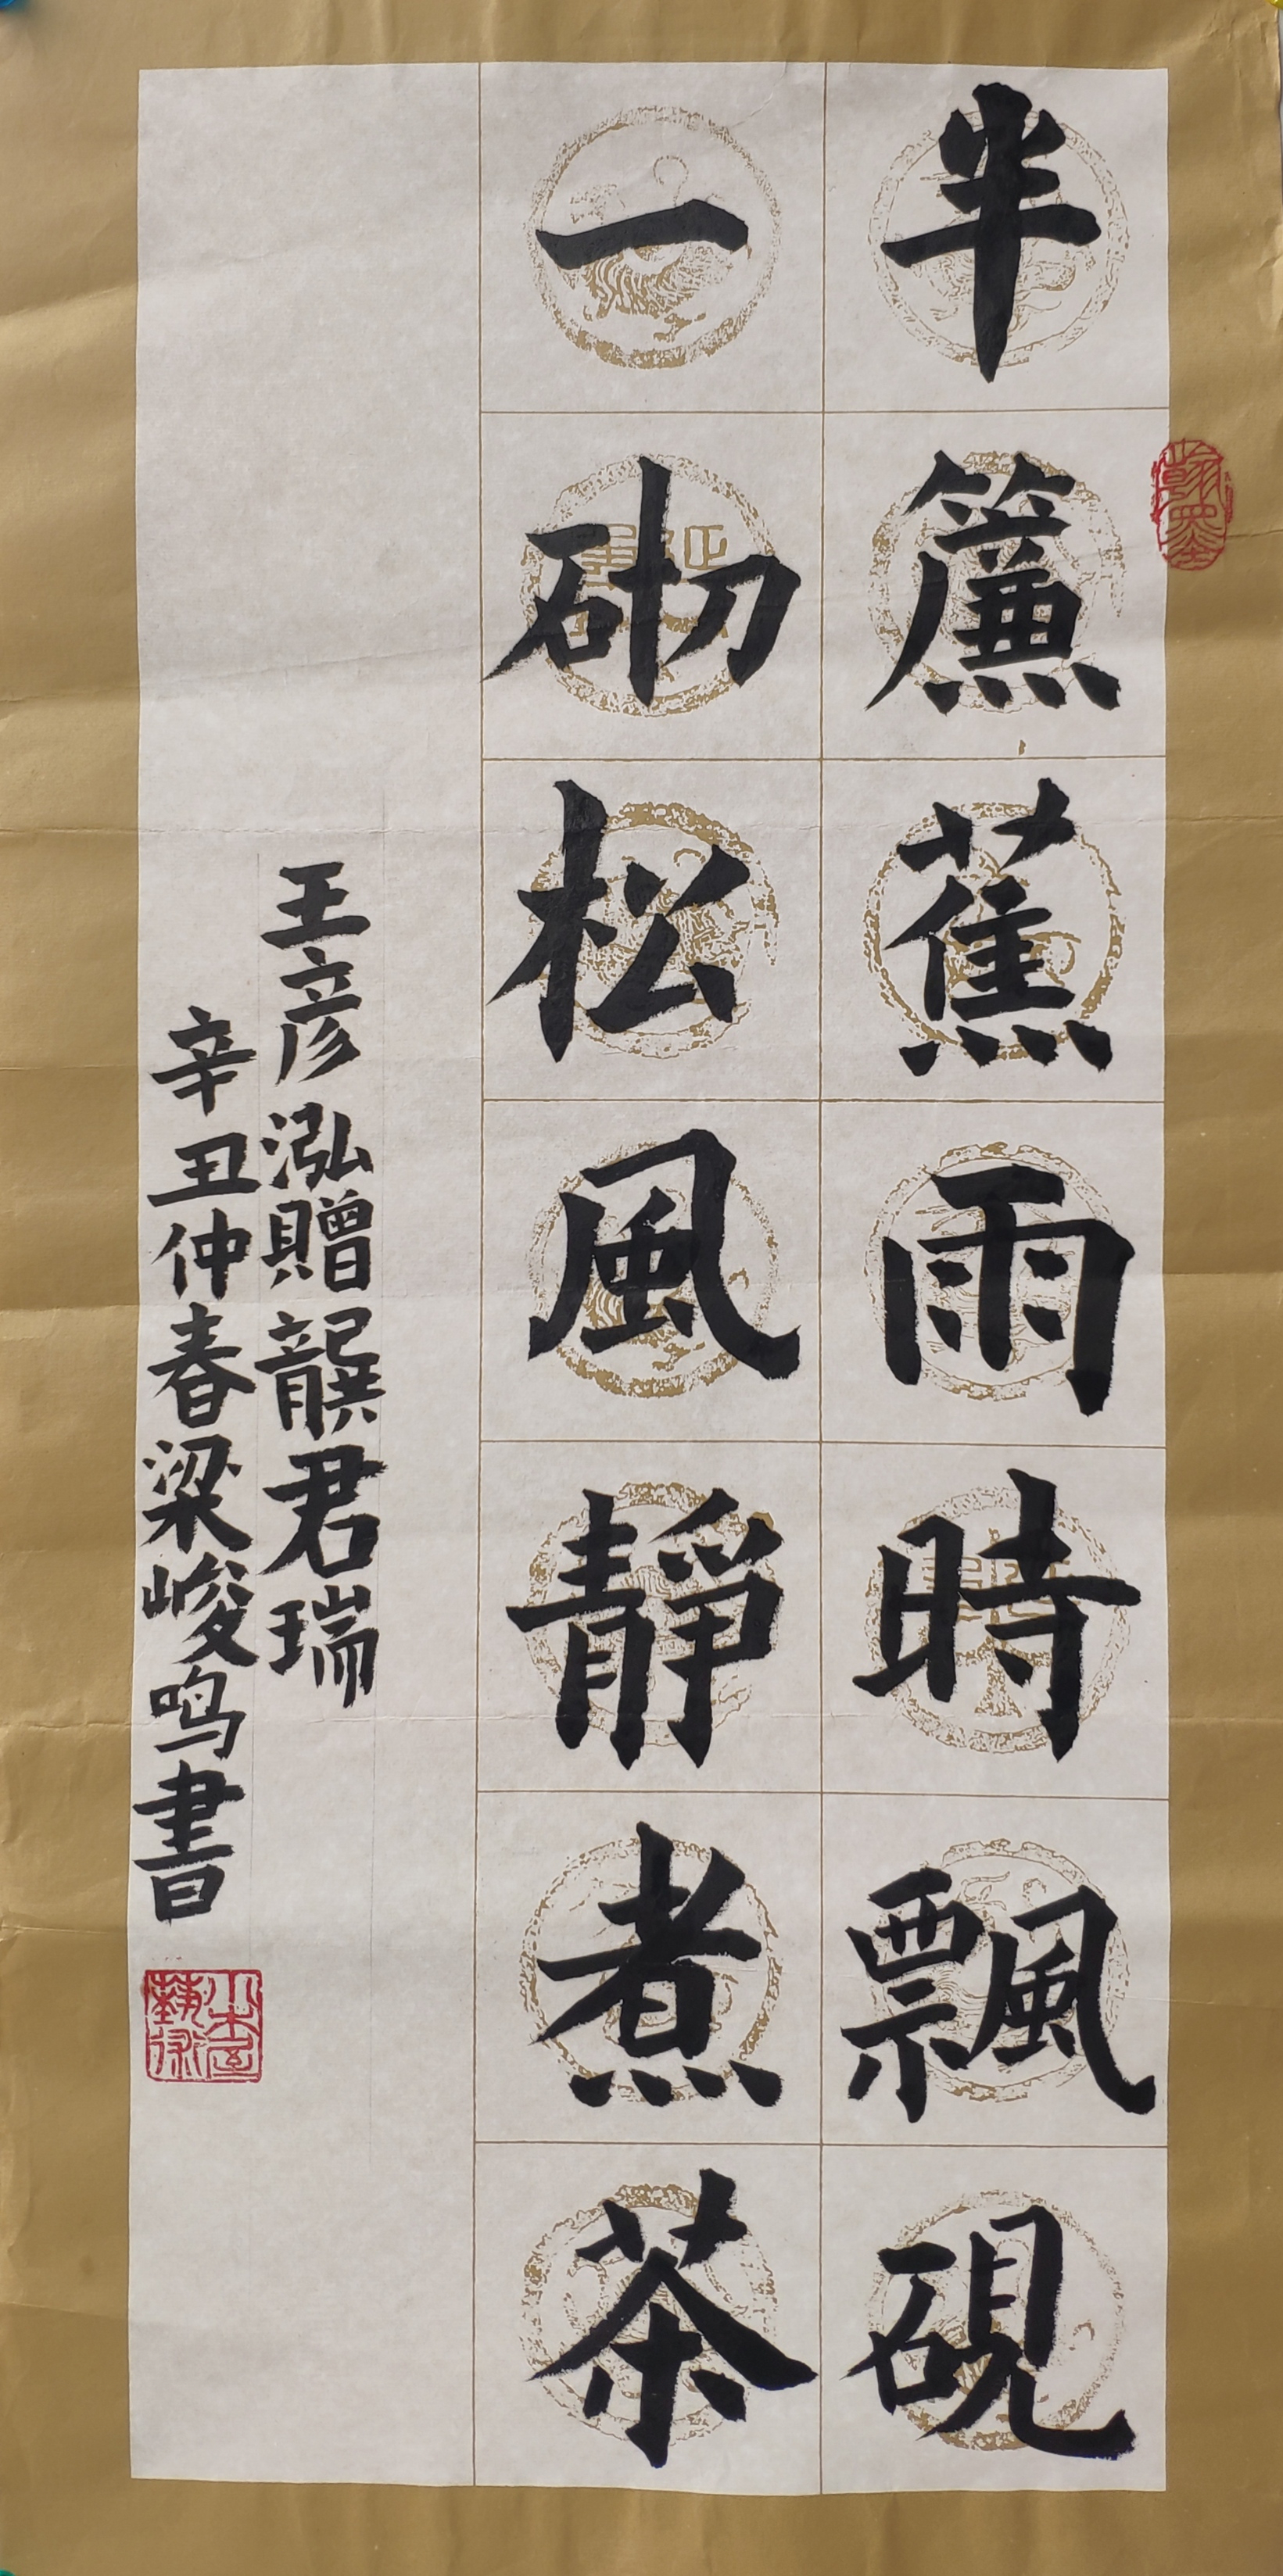 半簾蕉雨時飄硯
一砌松風靜煮茶
王彦泓贈龔君瑞
辛丑仲春梁峻鸣書
翰墨